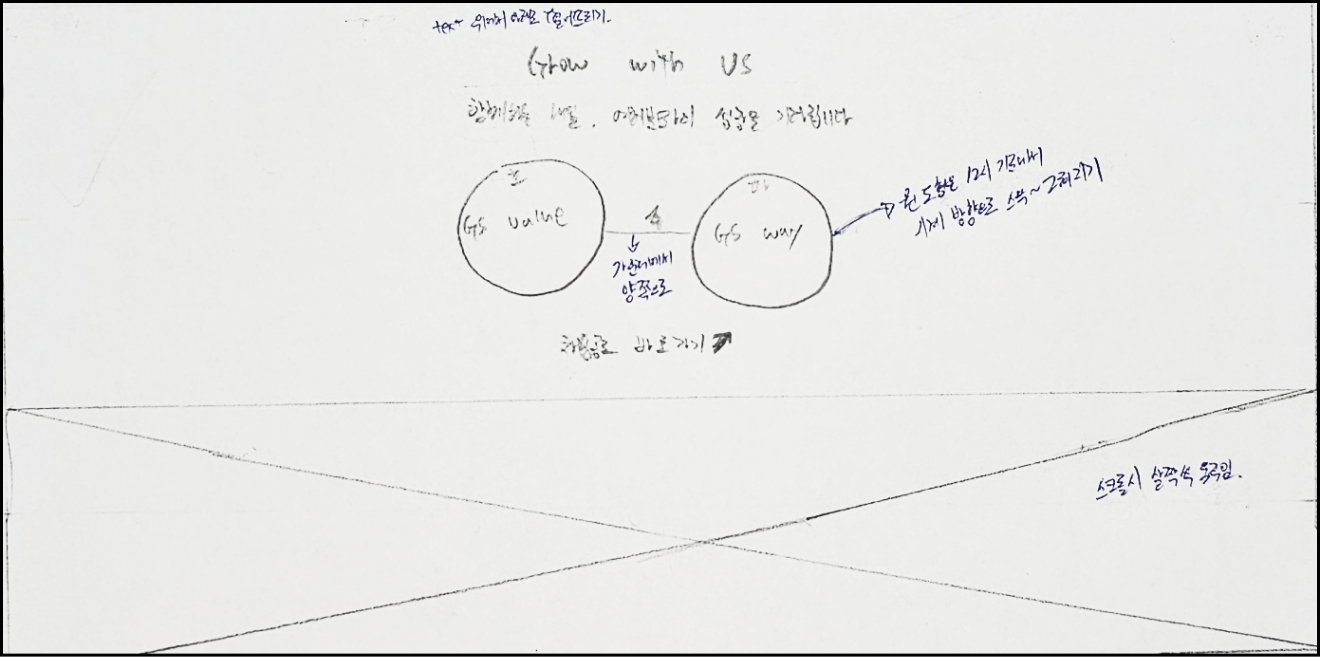 text 위에서 아래로 떨어뜨리기.
Grow with US
함께하는 내일, 여러분들의 성장을 기다립니다
GS value
GS way
가운데에서
양쪽으로
원 도형은 12시 기준에서
시계 방향으로 스윽~ 그려지기
채용공고 바로가기
스크롤시 살짝씩 움직임.